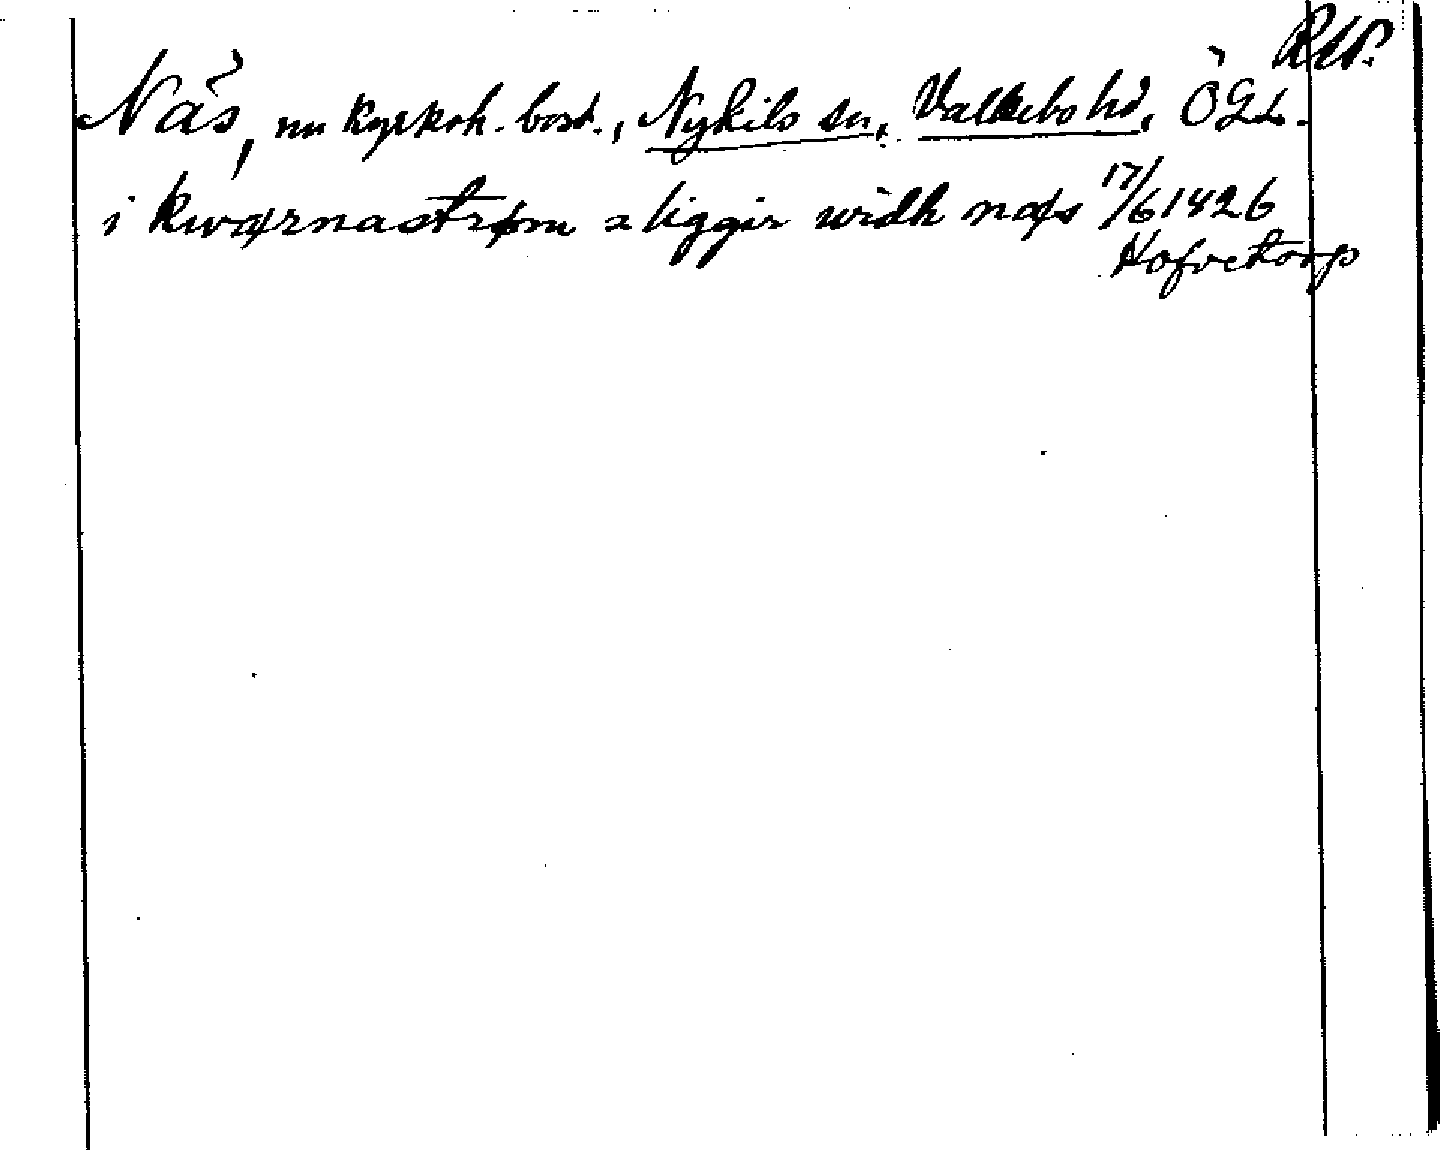 Näs, nu kyrkoh. bost., Nykils sn, Valkebo hd, ÖGL.
i kwærnastrøm a liggir widh næs 17/6 1426
Hofvetorp